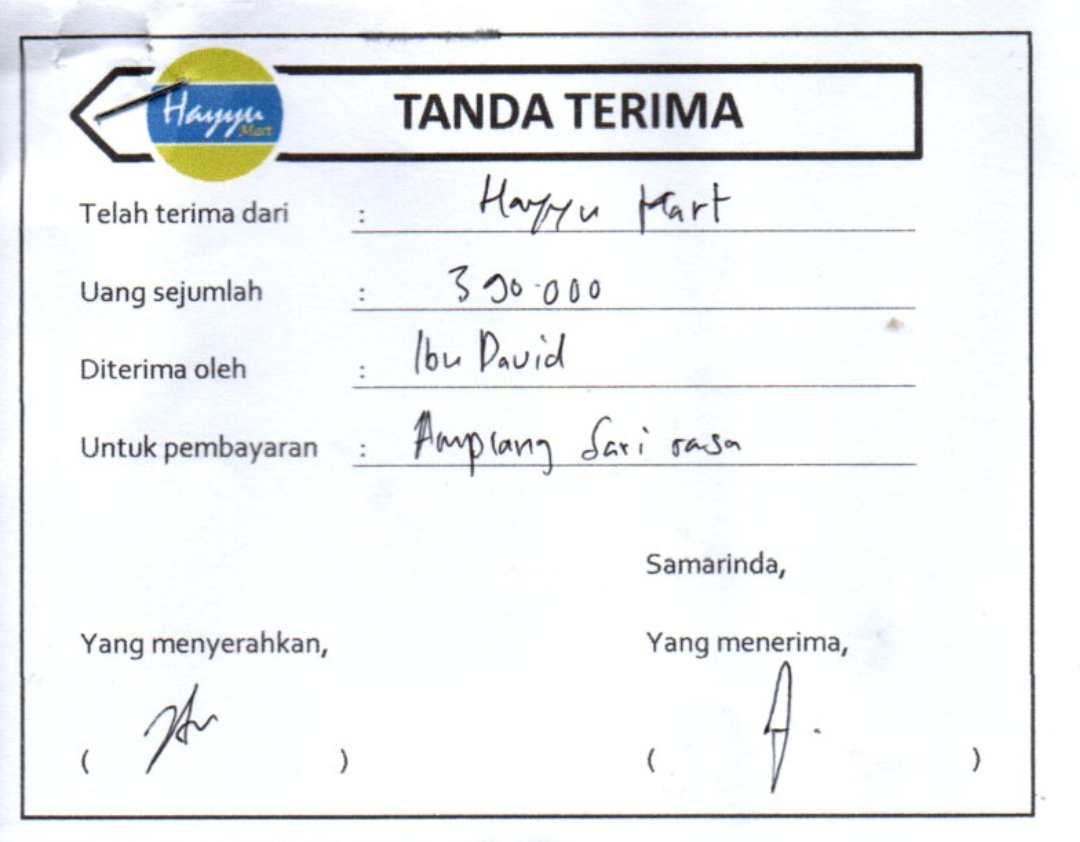 Hayyu Mart
TANDA TERIMA
Telah terima dari : Hayyu Mart
Uang sejumlah : 390.000
Diterima oleh : Ibu David
Untuk pembayaran : Amplang Sari rasa
Samarinda,
Yang menyerahkan, Yang menerima,
( ) ( )